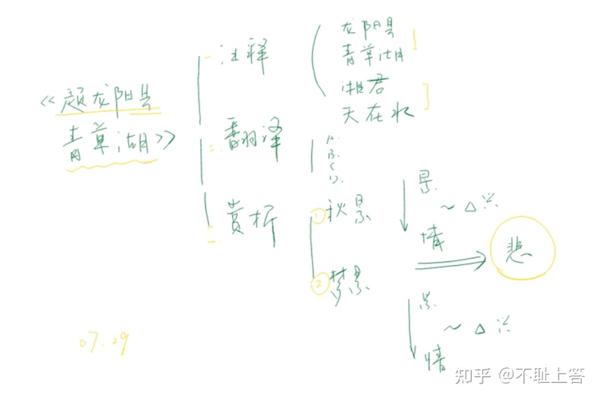 《题龙阳县
青草湖》
注释
龙阳县
青草湖
湘君
天在水
翻译
赏析
①秋景
景
情
②梦景
景
情
悲
07.29
知乎 @不耻上答